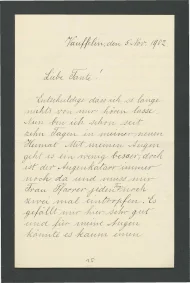 Vauffelin, den 6. Nov. 1902
Liebe Tante!
Entschuldige dass ich so lange
nichts von mir hören lasse.
Nun bin ich schon seit
zehn Tagen in meiner neuen
Heimat. Mit meinen Augen
geht es ein wenig besser, doch
ist der Augenkatarr immer
noch da und muss mir
Frau Pfarrer jeden
zwei mal eintropfen. Es
gefällt mir hier sehr gut
und für meine Augen
könnte es kaum einen